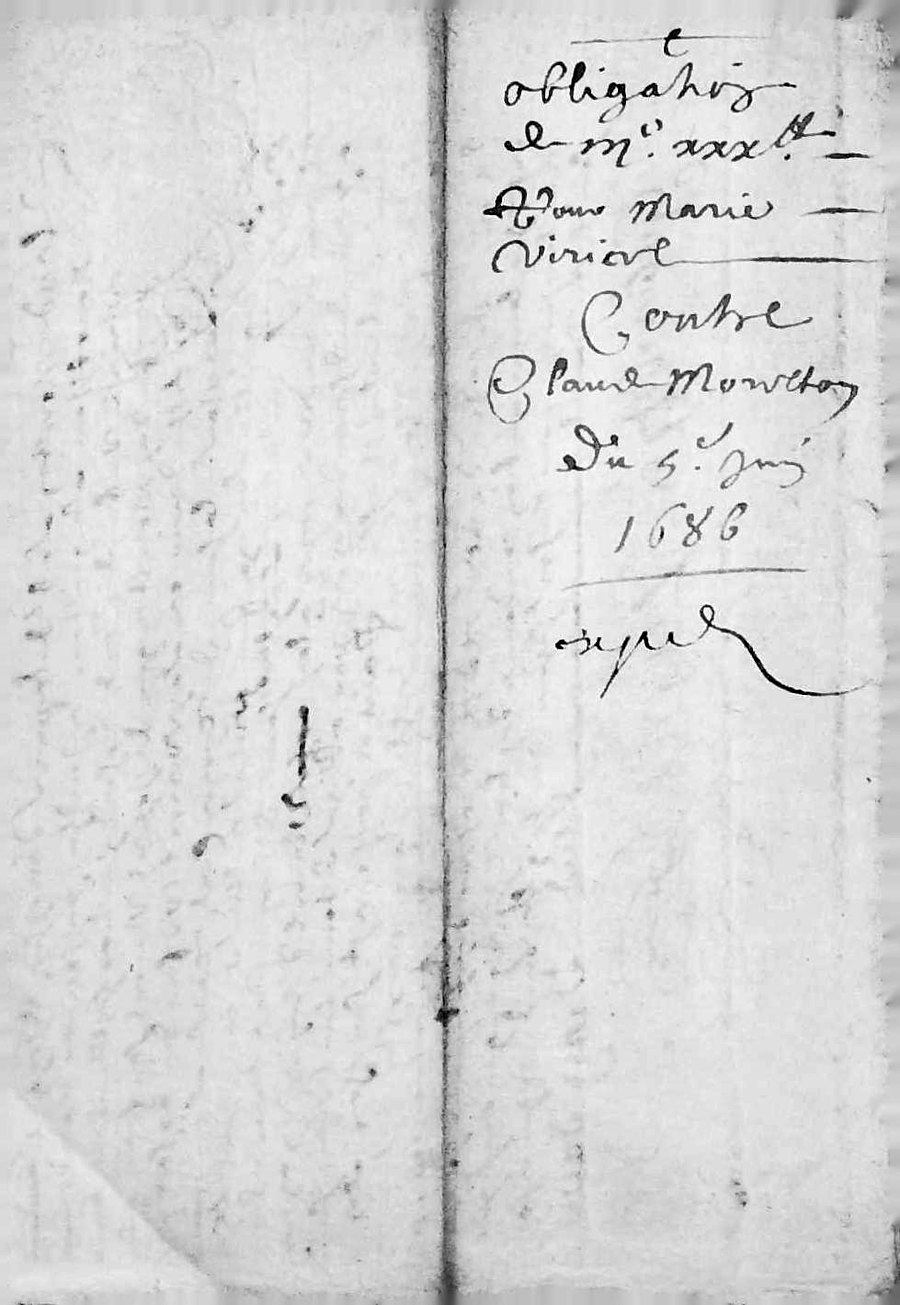 obligation
de mc. xxx lt.
Pour Marie
Viricel
Contre
Claude Morelton
Du 5e. Juin
1686
exped